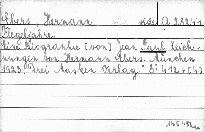 Ebers, Hermann siehe A 29247
Flegeljahre.
Eine Biographie [von] Jean Paul. Zeich-
nungen von Hermann Ebers. München
1923: "Drei Masken Verlag". S: 412 + [4]